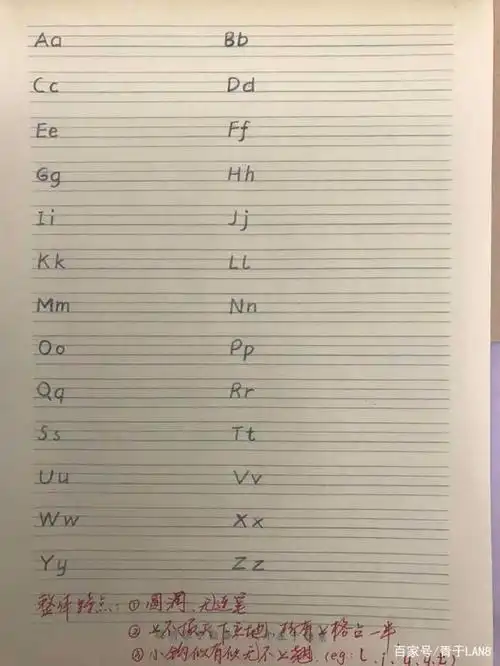 Aa Bb
Cc Dd
Ee Ff
Gg Hh
Ii Jj
Kk Ll
Mm Nn
Oo Pp
Qq Rr
Ss Tt
Uu Vv
Ww Xx
Yy Zz
整体特点：①圆润，无连笔
②上不顶天下立地，格占一半
③小钩似有似无不上翘 (eg: l, i, y, g, t)
百家号/香干LAN8